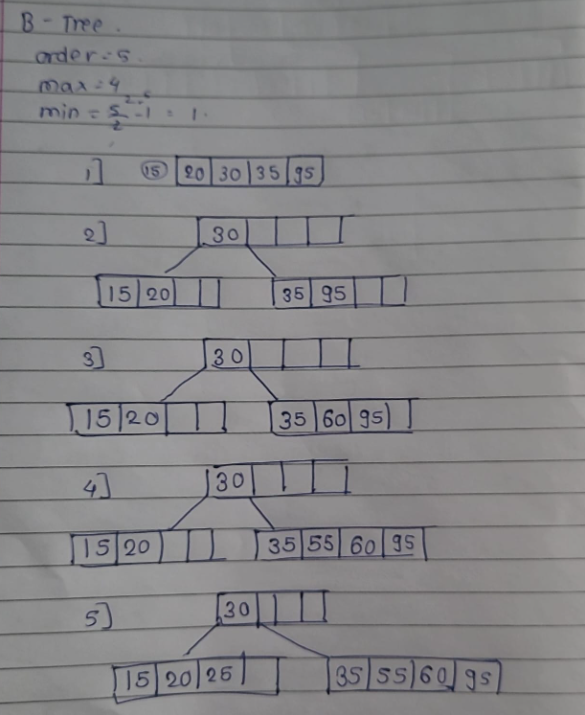 B - Tree.
order = 5.
max = 4
min = 5/2 - 1 = 1.
1] 15 20 30 35 95
2] 30
15 20 35 95
3] 30
15 20 35 60 95
4] 30
15 20 35 55 60 95
5] 30
15 20 25 35 55 60 95